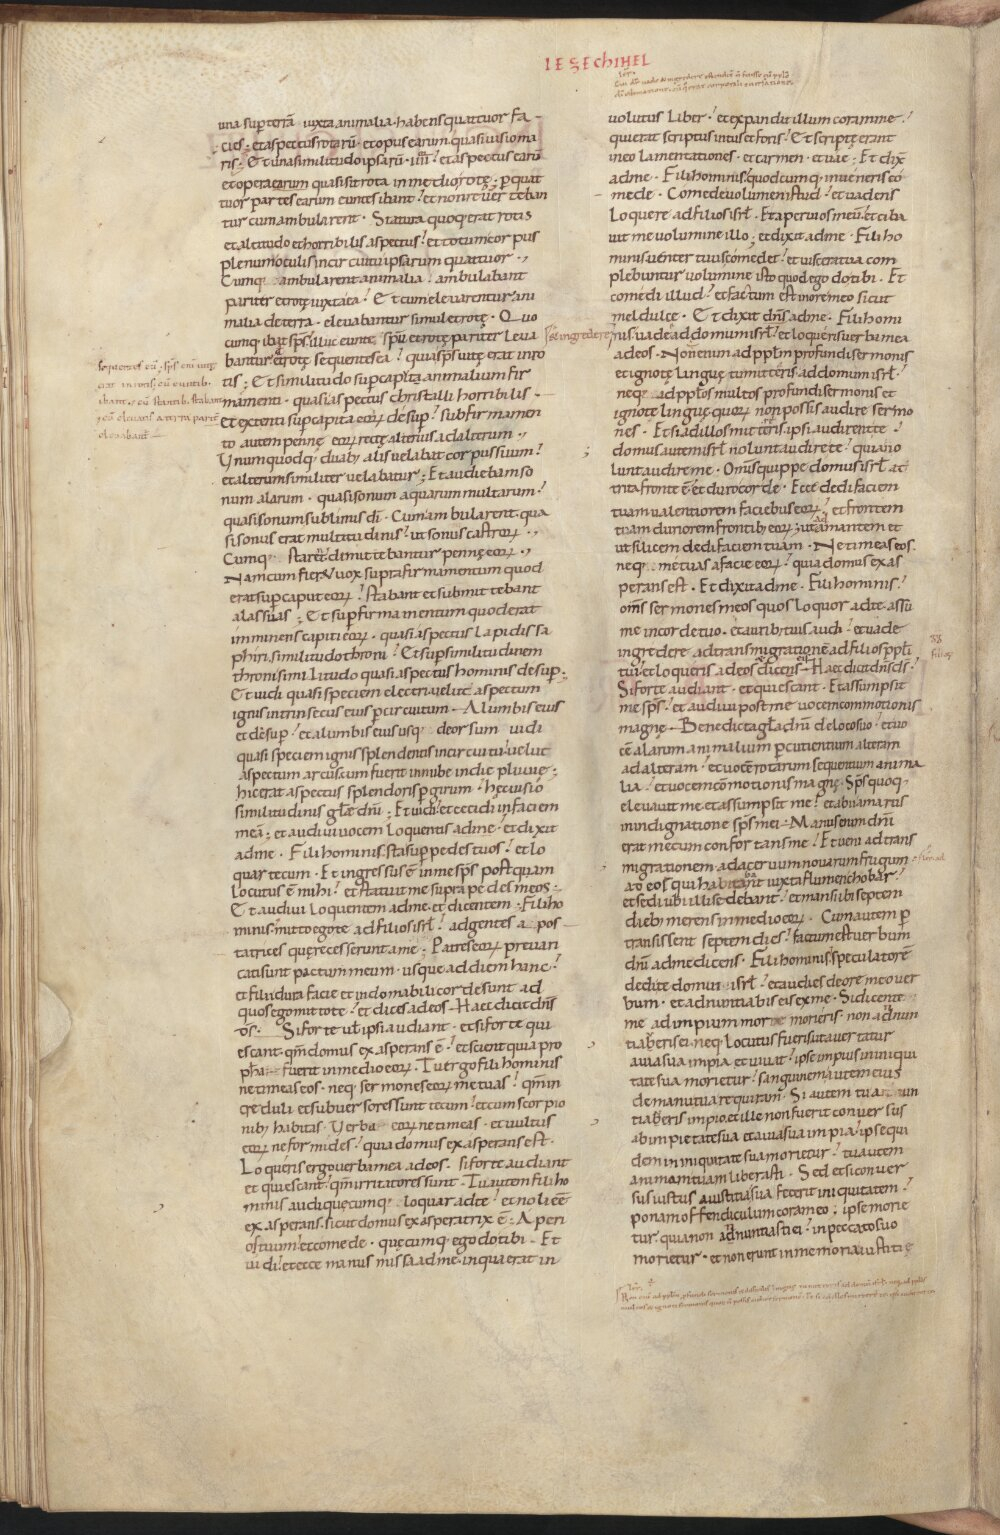 IEZECHIHEL
una sup terrā iuxta animalia habens quattuor fa
cies · et aspectus rotarū · et opus earum quasi visio ma
ris ; Et una similitudo ipsarū · iiii · et aspectus earū
et opera earum quasi sit rota in medio rotę · p quat
tuor partes earum euntes ibant · et non reverteban
tur cum ambularent · Statura quoq; erat rotis
et altitudo et horribilis aspectus · et totum corpus
plenum oculis in circuitu ipsarum quattuor ·,
Cumq; ambularent animalia · ambulabant
pariter et rotę iuxta ea · Et cum elevarentur ani
malia de terra · elevabantur simul et rotę · Quo
cumq; ibat sps · illuc eunte spū et rotę pariter leva
bantur sequentes ea · quasi sps vitę erat in ro
tis ; Et similitudo sup capita animalium fir
mamenti · quasi aspectus christalli horribilis ·
et extenti sup capita eorū desup · sub firmamen
to autem pennę eorū rectę alterius ad alterum ·,
Unumquodq; duab; alis velabat corpus suum ·
et alterum similiter velabatur ; Et audiebam so
num alarum · quasi sonum aquarum multarum ·
quasi sonum sublimis dī · Cum ambularent qua
si sonus erat multitudinis · ut sonus castrorū ·,
Cumq; starent dimittebantur pennę eorū ·,
Nam cum fieret vox supra firmamentum quod
erat sup caput eorū · stabant et submittebant
alas suas ; Et sup firmamentum quod erat
imminens capiti eorū · quasi aspectus lapidis sa
phiri similitudo throni · Et sup similitudinem
throni similitudo quasi aspectus hominis desup ·,
Et vidi quasi speciem electri velut aspectum
ignis intrinsecus eius p circuitum · A lumbis eius
et desup · et a lumbis eius usq; deorsum vidi
quasi speciem ignis splendentis in circuitu · velut
aspectum arcus cum fuerit in nube in die pluvię ·,
hic erat aspectus splendoris p girum · hęc visio
similitudinis glæ dnī ; Et vidi · et cecidi in faciem
meā ; et audivi vocem loquentis ad me · et dixit
ad me · Fili hominis · sta sup pedes tuos · et lo
quar tecum · Et ingressus ē in me sps postquam
locutus ē mihi · et statuit me supra pedes meos ·,
Et audivi loquentem ad me · et dicentem · Fili ho
minis · mitto ego te ad filios isrl · ad gentes apos
tatrices quę recesserunt a me ; Patres eorū prevari
cati sunt pactum meum · usque ad diem hanc ·
et filii dura facie et indomabili corde sunt ad
quos ego mitto te · et dices ad eos · Haec dicit dns
ds · Si forte vel ipsi audiant · et si forte qui
escant · qm domus exasperans ē · et scient quia pro
pha fuerit in medio eorū · Tu ergo fili hominis
ne timeas eos · neq; sermones eorū metuas · qm in
creduli et subversores sunt tecum · et cum scorpio
nib; habitas · Verba eorū ne timeas · et vultus
eorū ne formides · quia domus exasperans est ·
Loqueris ergo verba mea ad eos · si forte audiant
et quiescant · qm irritatores sunt · Tu autem fili ho
minis audi quęcumq; loquar ad te · et noli eē
exasperans · sicut domus exasperatrix ē ; Aperi
os tuum · et comede · quęcumq; ego do tibi · Et
vidi · et ecce manus missa ad me · in qua erat in
volutus liber · et expandit illum coram me ·
qui erat scriptus intus et foris · Et scriptę erant
in eo lamentationes · et carmen · et vae ; Et dix
ad me · Fili hominis quodcumq; inveneris co
mede · Comede volumen istud · et vadens
loquere ad filios isrl · Et aperui os meū · et ciba
vit me volumine illo ; et dixit ad me · Fili ho
minis venter tuus comedet · et viscera tua com
plebuntur volumine isto quod ego do tibi · Et
comedi illud · et factum est in ore meo sicut
mel dulce · Et dixit dns ad me · Fili homi
nis · vade ad domum isrl · et loqueris verba mea
ad eos · Non enim ad pplm profundi sermonis
et ignotę linguę tu mitteris · ad domum isrl ·
neq; ad pplos multos profundi sermonis et
ignotę linguę · quorū non possis audire sermo
nes · Et si ad illos mittereris · ipsi audirent te ·
domus autem isrl nolunt audire te · quia no
lunt audire me · Omis quippe domus isrl at
trita fronte ē · et duro corde · Ecce dedi faciem
tuam valentiorem faciebus eorū · et frontem
tuam duriorem frontib; eorū · ut adamantem et
ut silicem dedi faciem tuam · Ne timeas eos ·
neq; metuas a facie eorū · quia domus exas
perans est · Et dixit ad me · Fili hominis ·
oms sermones meos quos loquor ad te · assu
me in corde tuo · et aurib; tuis audi · et vade
ingredere ad transmigrationē ad filios ppli
tui · et loqueris ad eos et dices eis · Haec dicit dns ds ·
Si forte audiant · et quiescant · Et assumpsit
me sps · et audivi post me vocem commotionis
magnę · Benedicta gla dnī de loco suo · et vo
cē alarum animalium pcutientium alteram
ad alteram · et vocē rotarum sequentium anima
lia · et vocem cōmotionis magnę · Sps quoq;
elevavit me · et assumpsit me · et abii amarus
in indignatione sps mei · Manus enim dnī
erat mecum confortans me · Et veni ad trans
migrationem · ad acervum novarum frugum
ad eos qui habitabant iuxta flumen chobar ·
et sedi ubi illi sedebant · et mansi ibi septem
dieb; merens in medio eorū · Cum autem p
transissent septem dies · factum est verbum
dnī ad me dicens · Fili hominis speculatorē
dedi te domui isrl · et audies de ore meo ver
bum · et adnuntiabis eis ex me · Si dicente
me ad impium morte morieris · non adnun
tiaberis ei · neq; locutus fueris ut avertatur
a via sua impia et vivat · ipse impius in iniqui
tate sua morietur · sanguinem autem eius
de manu tua requiram · Si autem tu adnun
tiaberis impio · et ille non fuerit conversus
ab impietate sua et a via sua impia · ipse qui
dem in iniquitate sua morietur · tu autem
animam tuam liberasti · Sed et si conver
sus iustus a iustitia sua fecerit iniquitatem ·
ponam offendiculum coram eo ; ipse morie
tur · quia non adnuntiasti ei · in peccato suo
morietur · et non erunt in memoria iustitię